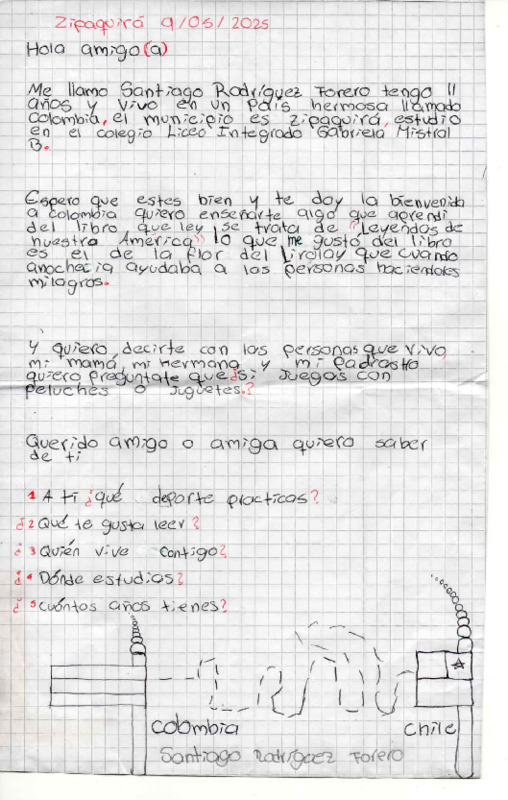 Zipaquirá 9/05/2025
Hola amigo(a)
Me llamo Santiago Rodríguez Forero tengo 11
años y vivo en un País hermosa llamado
Colombia, el municipio es zipaquirá, estudio
en el colegio Liceo Integrado Gabriela Mistral
B.
Espero que estes bien y te doy la bienvenida
a colombia quiero enseñarte algo que aprendi
del libro que ley se trata de "Leyendas de
nuestra América" lo que me gustó del libro
es el de la flor del lirolay que cuando
anochecia ayudaba a las personas haciendoles
milagros.
Y quiero decirte con las personas que vivo,
mi mamá, mi hermana, y mi Padrastro
quiero preguntate que ¿si Juegas con
peluches o Juguetes.?
Querido amigo o amiga quiero saber
de ti
1 A ti ¿qué deporte practicas?
¿2 Qué te gusta leer?
¿3 Quién vive contigo?
¿4 Dónde estudias?
¿5 cuántos años tienes?
colombia
chile
Santiago Rodríguez Forero